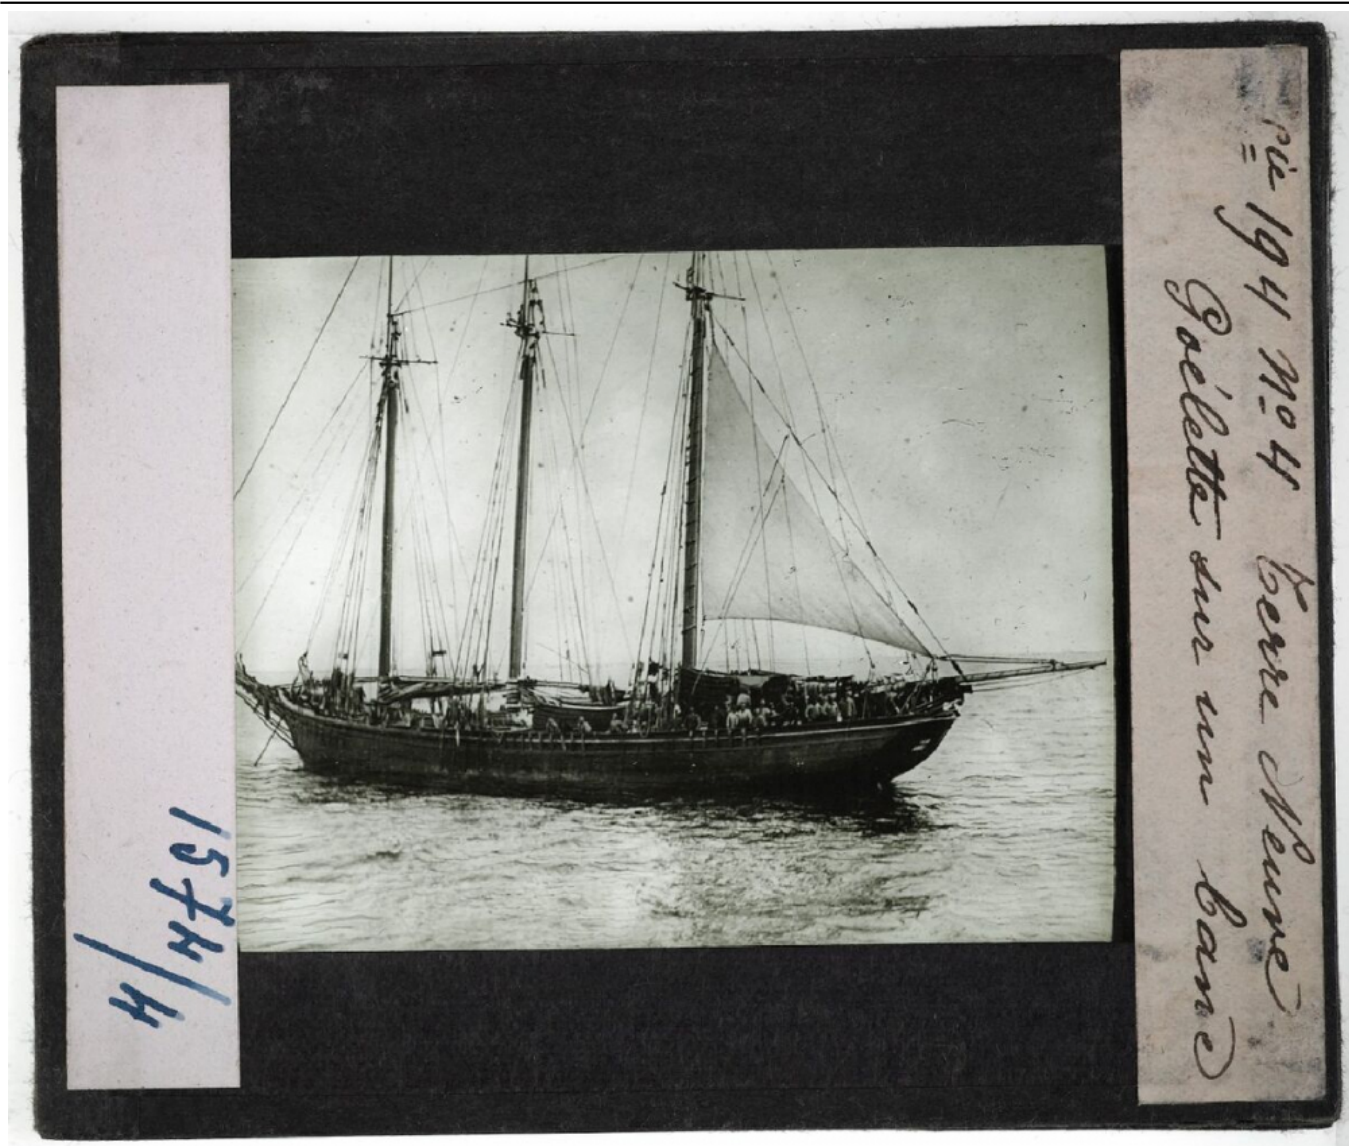 rie 194 No 4 Terre Neuve
Goélette sur un banc
1574/
4